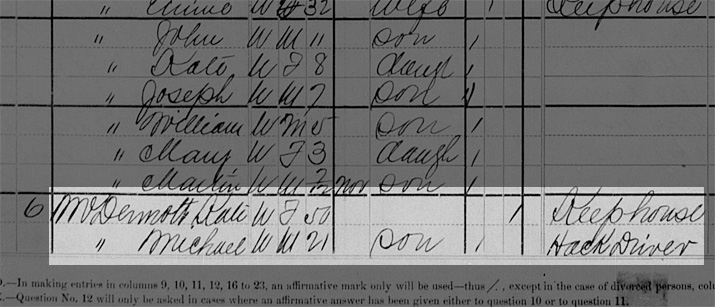 W F 32 Wife 1 Keephouse
" John W M 11 son 1
" Kate W F 8 daugh 1
" Joseph W M 7 son 1
" William W M 5 son 1
" Mary W F 3 daugh 1
" Martin W M Nov son 1
6 McDermott Kate W F 50 1 Keephouse
" Michael W M 21 son 1 Hack Driver
.—In making entries in columns 9, 10, 11, 12, 16 to 23, an affirmative mark only will be used—thus /, except in the case of divorced persons,
.—Question No. 12 will only be asked in cases where an affirmative answer has been given either to question 10 or to question 11.